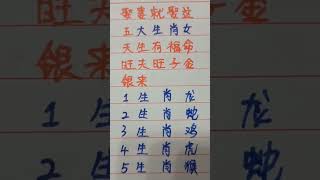 娶妻就娶这
五大生肖女
天生有福命
旺夫旺子金
银来
1 生肖龙
2 生肖蛇
3 生肖鸡
4 生肖虎
5 生肖猴